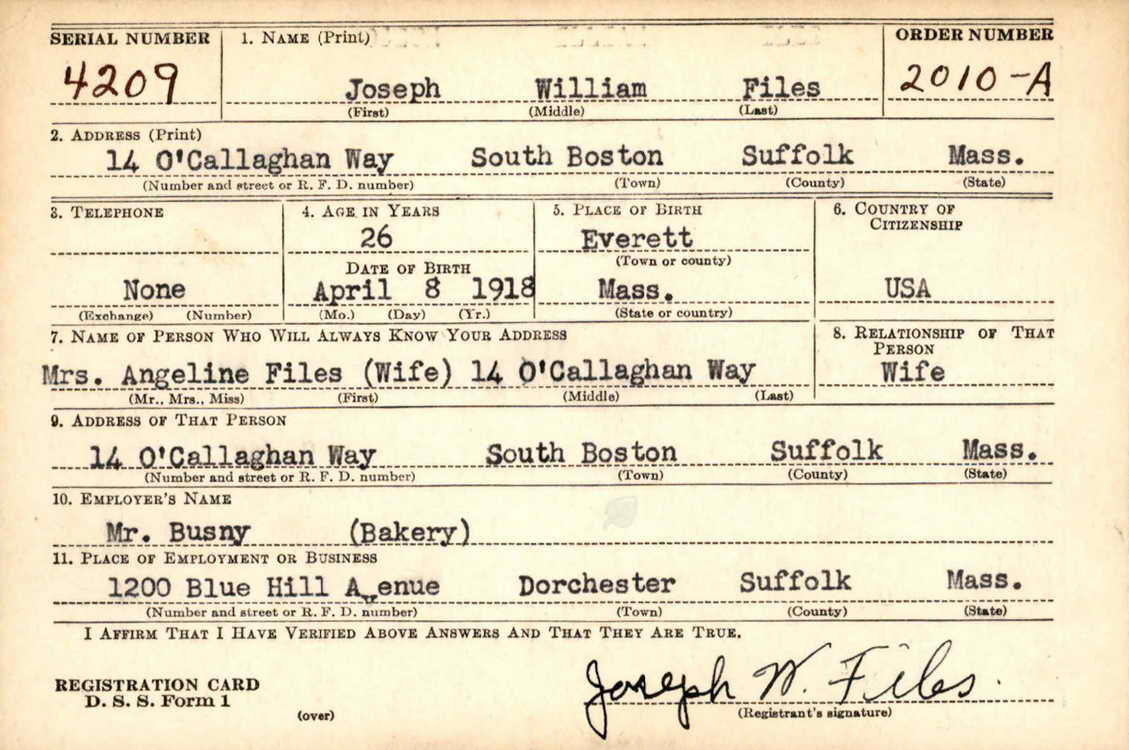 SERIAL NUMBER 1. NAME (Print) ORDER NUMBER
4209 Joseph William Files 2010-A
(First) (Middle) (Last)
2. ADDRESS (Print)
14 O'Callaghan Way South Boston Suffolk Mass.
(Number and street or R. F. D. number) (Town) (County) (State)
3. TELEPHONE 4. AGE IN YEARS 5. PLACE OF BIRTH 6. COUNTRY OF
CITIZENSHIP
26 Everett
DATE OF BIRTH (Town or county)
None April 8 1918 Mass. USA
(Exchange) (Number) (Mo.) (Day) (Yr.) (State or country)
7. NAME OF PERSON WHO WILL ALWAYS KNOW YOUR ADDRESS 8. RELATIONSHIP OF THAT
PERSON
Mrs. Angeline Files (Wife) 14 O'Callaghan Way Wife
(Mr., Mrs., Miss) (First) (Middle) (Last)
9. ADDRESS OF THAT PERSON
14 O'Callaghan Way South Boston Suffolk Mass.
(Number and street or R. F. D. number) (Town) (County) (State)
10. EMPLOYER'S NAME
Mr. Busny (Bakery)
11. PLACE OF EMPLOYMENT OR BUSINESS
1200 Blue Hill A enue Dorchester Suffolk Mass.
(Number and street or R. F. D. number) (Town) (County) (State)
I AFFIRM THAT I HAVE VERIFIED ABOVE ANSWERS AND THAT THEY ARE TRUE.
Joseph W. Files.
REGISTRATION CARD
D. S. S. Form 1
(over) (Registrant's signature)